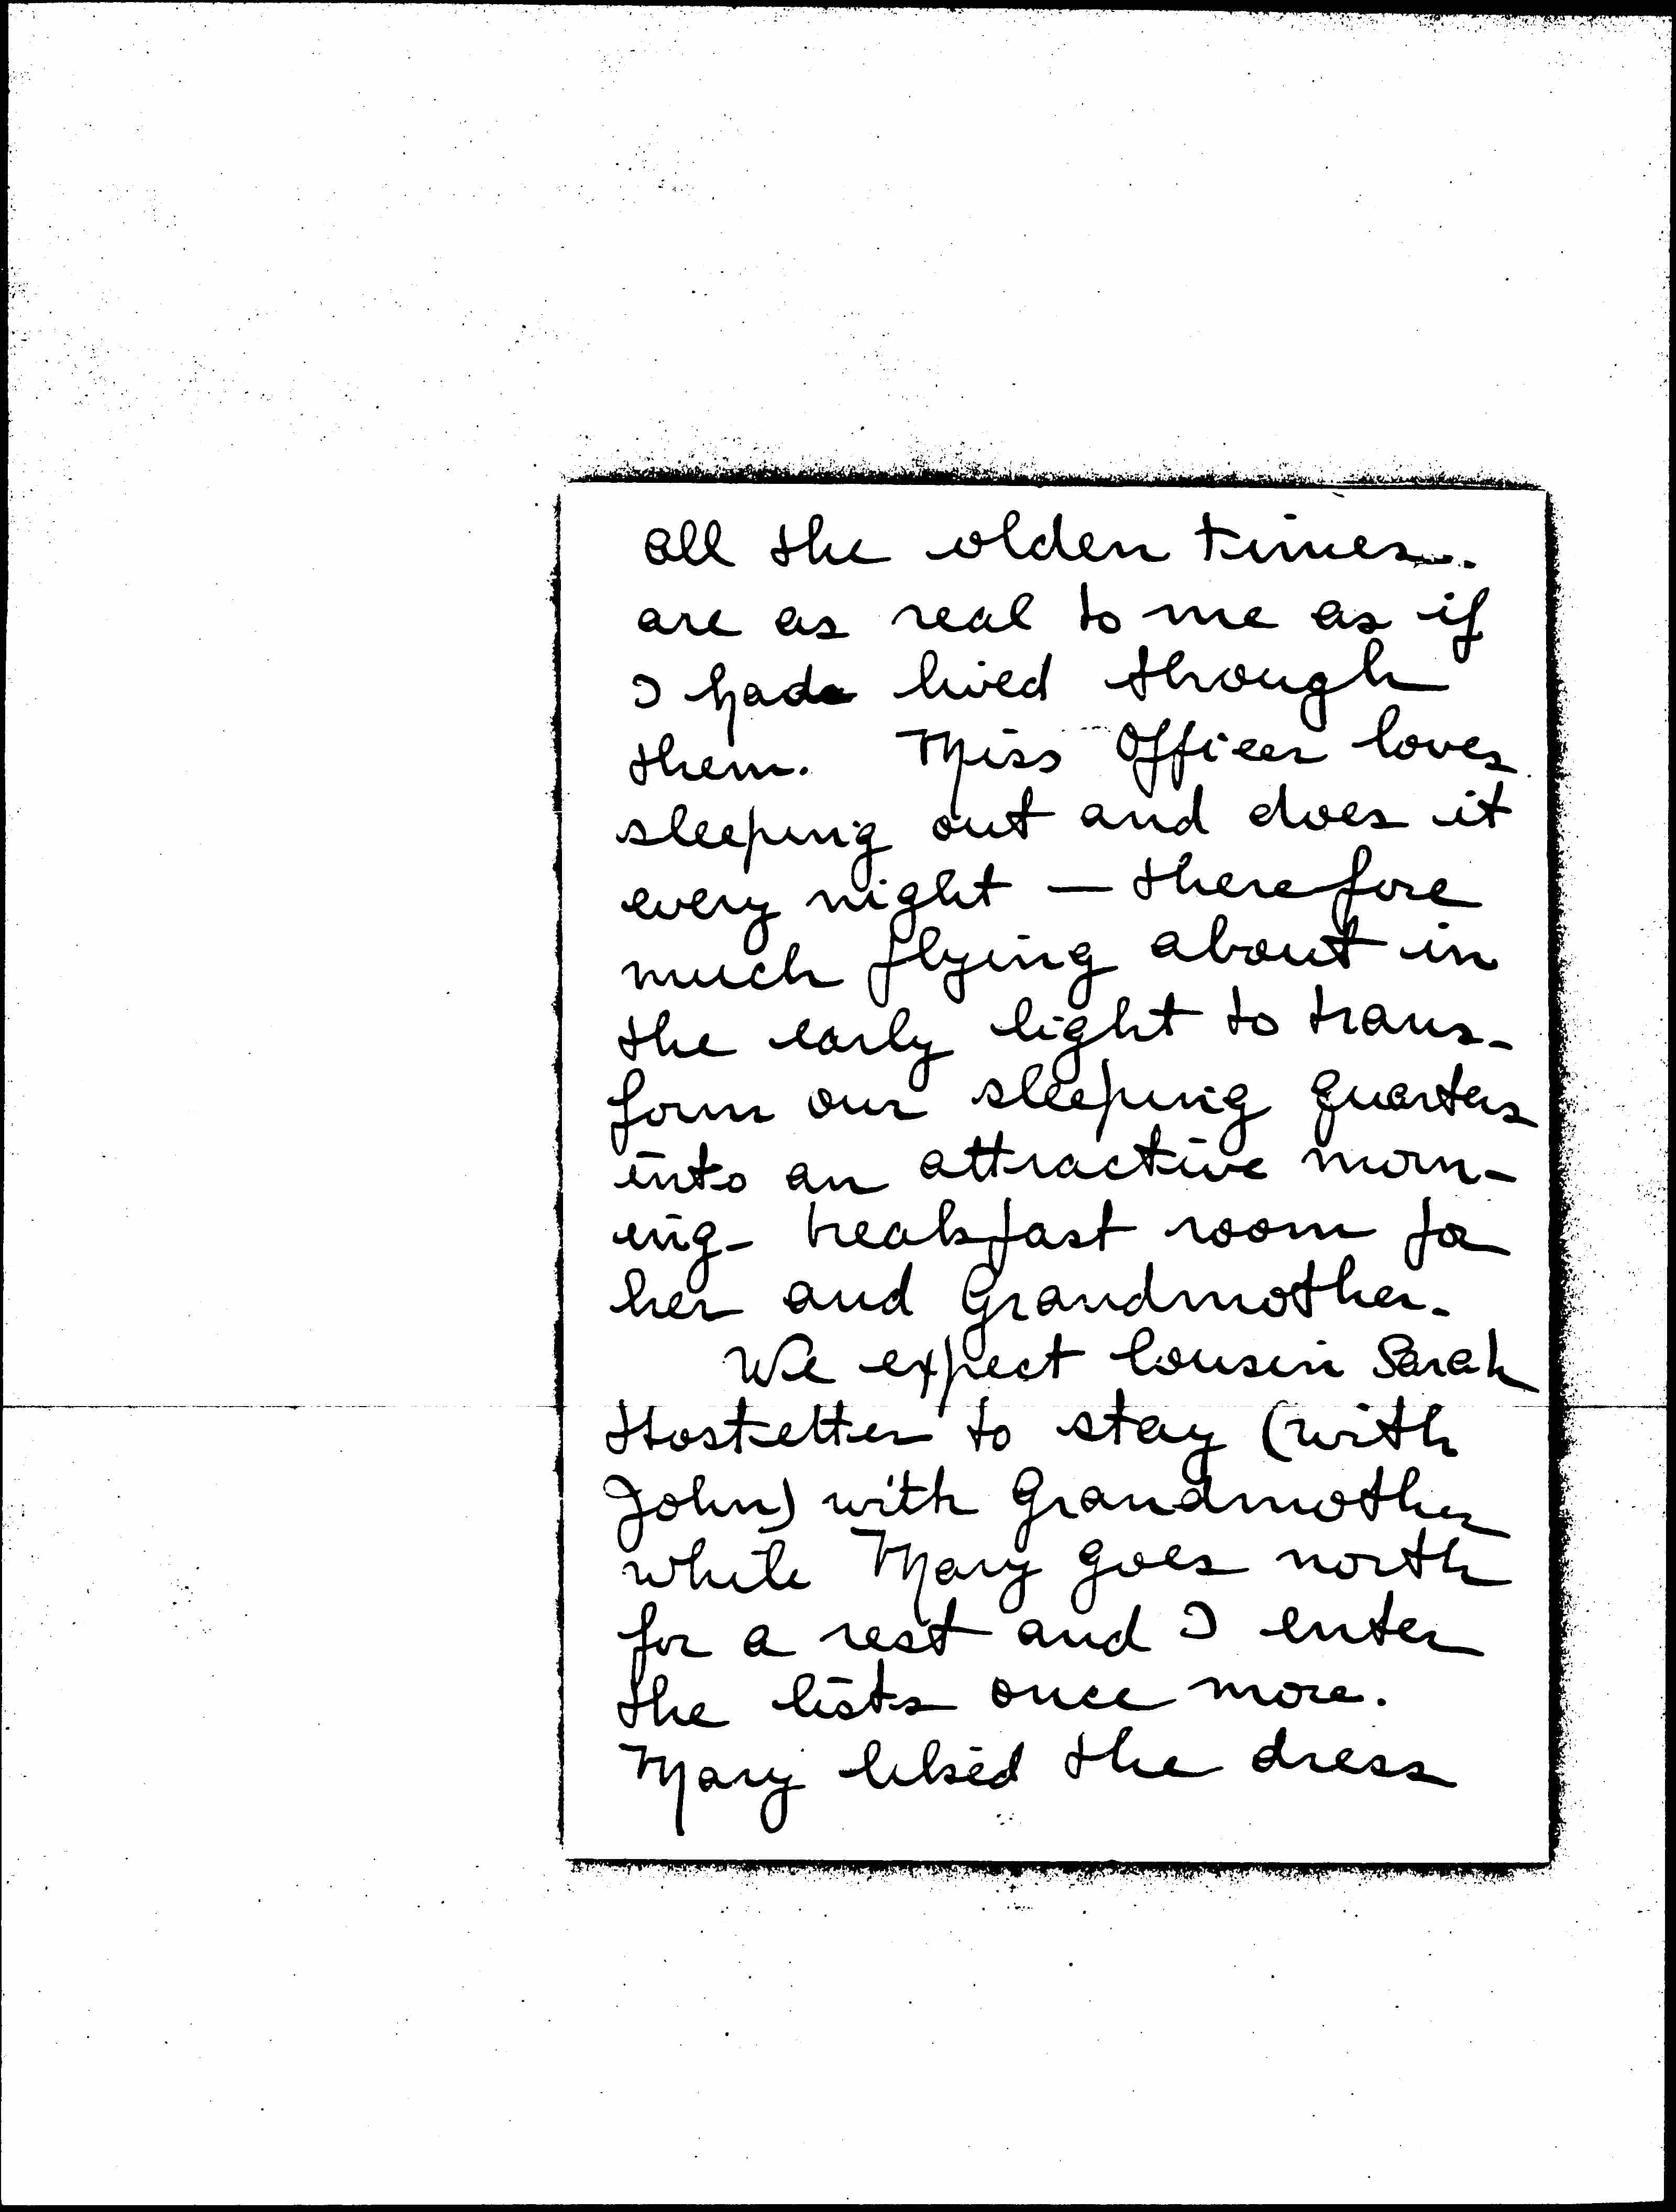 all the olden times
are as real to me as if
I had lived through
them. Miss Officer loves
sleeping out and does it
every night — therefore
much flying about in
the early light to trans-
form our sleeping quarters
into an attractive morn-
ing- breakfast room for
her and Grandmother.
We expect Cousin Sarah
Hostetter to stay (with
John) with Grandmother
while Mary goes north
for a rest and I enter
the lists once more.
Mary liked the dress